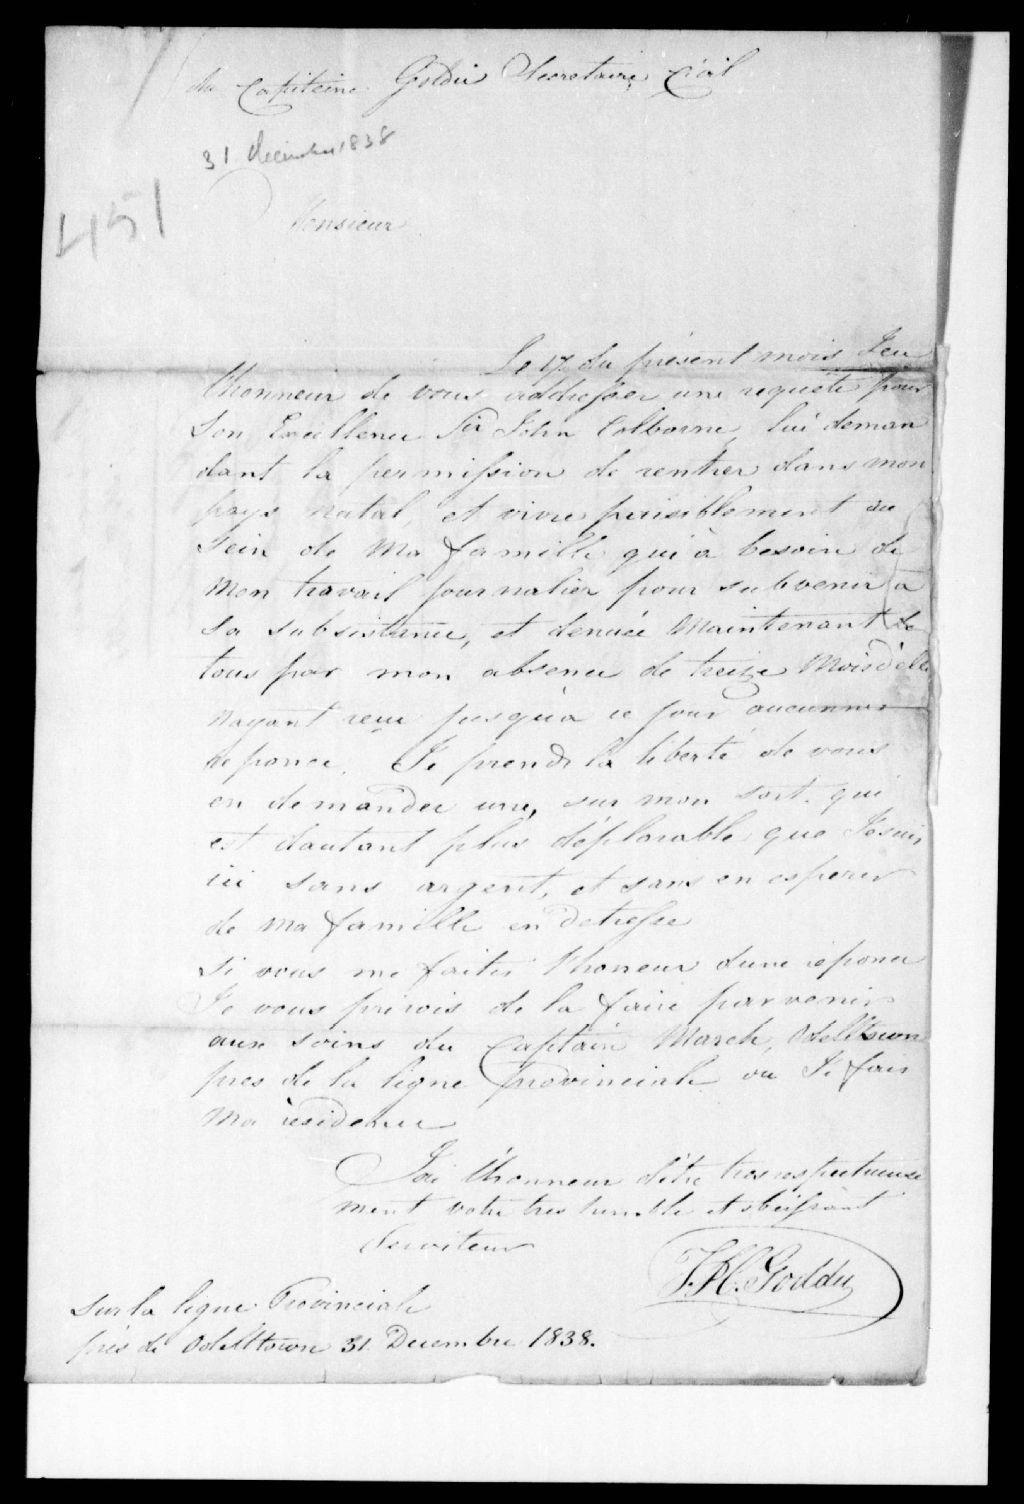 au Capitaine Goldie Secretaire Civil
31 décembre 1838
451
Monsieur
Le 17 du présent mois J'eu
l'honneur de vous addresser une requête pour
Son Excellence Sir John Colborne, lui deman
dant la permission de rentrer dans mon
pays natal, et vivre paisiblement au
Sein de Ma famille qui à besoin de
Mon travail journalier pour subvenir à
Sa subsistance, et denuée Maintenant de
tous par mon absence de treize Mois d'elle
Nayant reçu jusqu'à ce jour aucunne
reponce. Je prends la liberté de vous
en demander une, sur mon sort. qui
est dautant plus déplorable que Je suis
ici sans argent, et sans en esperer
de Ma famille en detresse
Si vous me faites l'honneur dune reponce
Je vous prirois de la faire parvenir
aux soins du Captain March, Odelltown
pres de la ligne provinciale ou Je fais
Ma residence
J'ai l'honneur d'être tres respectueuse
ment votre tres humble et obeissant
Serviteur
T. H. Goddu
Sur la ligne Provinciale
près de Odelltown 31 Decembre 1838.